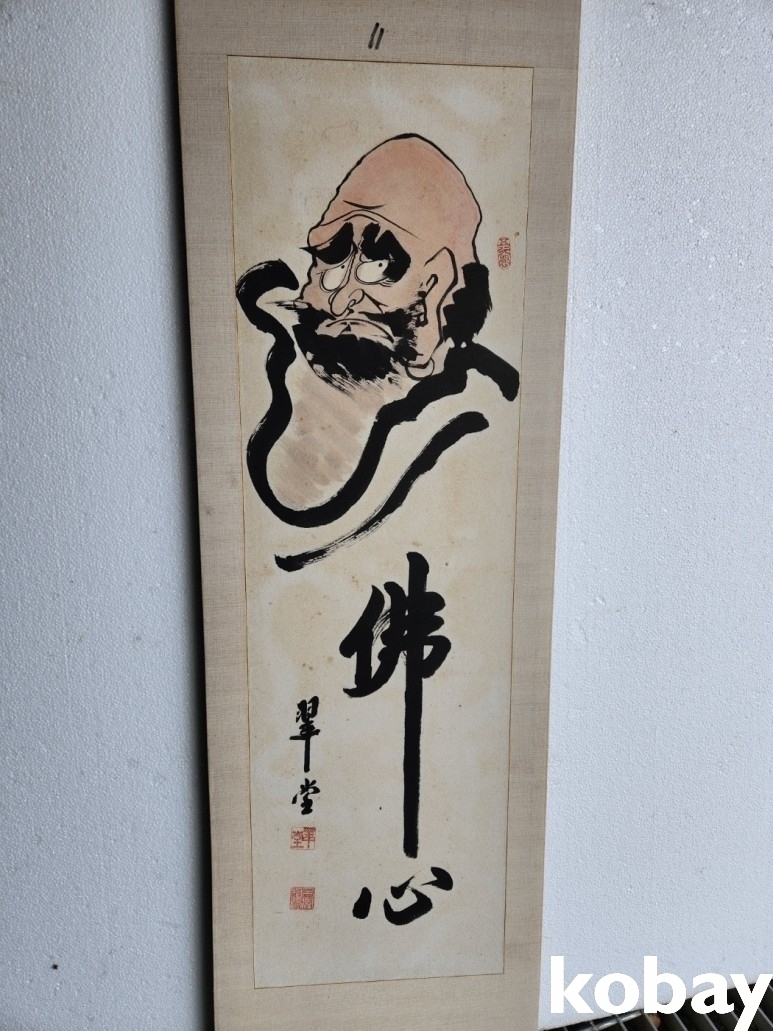 11
佛心
翠堂
kobay